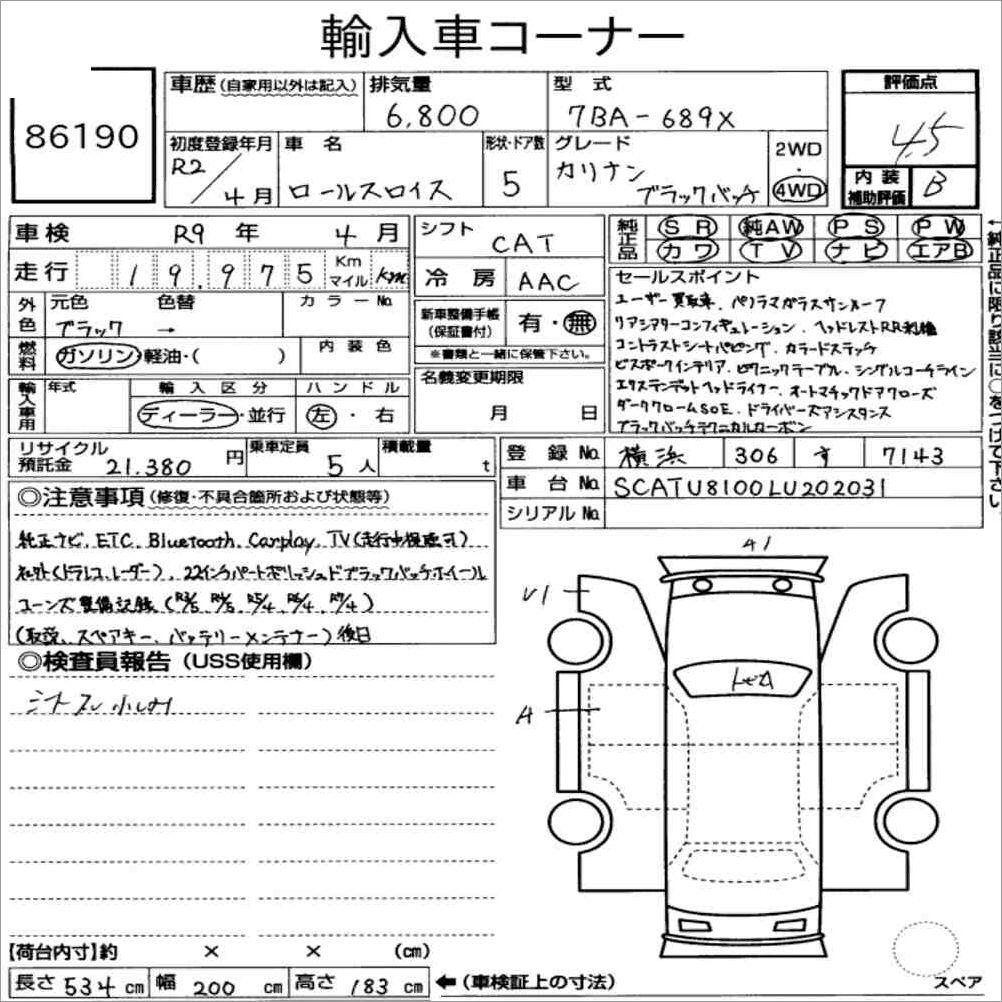 輸入車コーナー
86190
車歴(自家用以外は記入)
排気量
6,800
型式
7BA-689X
評価点
4.5
初度登録年月
R2/4月
車名
ロールスロイス
形状・ドア数
5
グレード
カリナン
ブラックバッヂ
2WD
・
4WD
内装
補助評価
B
車検 R9年 4月
シフト
CAT
純正品
SR 純AW PS PW
カワ TV ナビ エアB
←純正品に限り該当に○をつけて下さい。
走行 19,975 Km マイル km
冷房 AAC
セールスポイント
ユーザー買取車、パノラマガラスサンルーフ
リアシアターコンフィギュレーション、ヘッドレストRR刺繍
コントラストシートパイピング、カラードステッチ
ビスポークインテリア、ピクニックテーブル、シングルコーチライン
エクステンデットヘッドライナー、オートマチックドアクローズ
ダーククロームSOE、ドライバーズアシスタンス
ブラックバッヂテクニカルカーボン
外色
元色 色替 カラーNo.
ブラック →
新車整備手帳
(保証書付)
有・無
※書類と一緒に保管下さい。
燃料
ガソリン・軽油・( )
内装色
名義変更期限
月 日
輸入車用
年式
輸入区分
ディーラー・並行
ハンドル
左・右
リサイクル
預託金 21,380円
乗車定員
5人
積載量
t
登録No. 横浜 306 す 7143
車台No. SCATU8100LU202031
シリアルNo.
◎注意事項(修復・不具合箇所および状態等)
純正ナビ、ETC、Bluetooth、Carplay、TV(走行中視聴可)
社外(ドラレコ、レーダー)、22インチパートポリッシュドブラックバッヂホイール
コーンズ整備記録(R3/5、R4/5、R5/4、R6/4、R7/4)
(取説、スペアキー、バッテリーメンテナー)後日
◎検査員報告(USS使用欄)
シートスレ小し4
A1
U1
A
スペア
【荷台内寸】約 × × (cm)
長さ534cm 幅200cm 高さ183cm ←(車検証上の寸法)